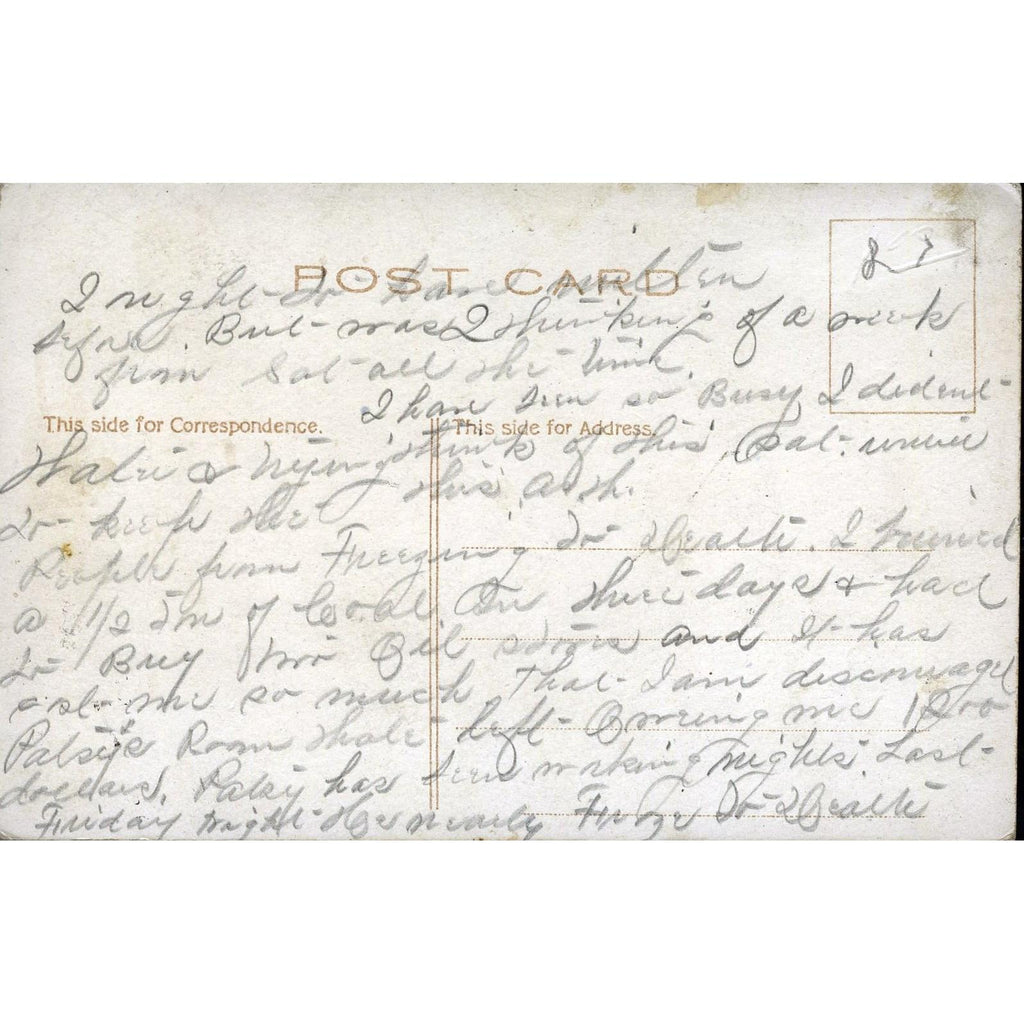 POST CARD
2 7
I ought to have written
before. But was I thinking of a week
from Sat all the time.
I have been so Busy I dident
This side for Correspondence.
This side for Address.
think of this Sat. untill
this A.M.
& trying
to keep the
People from Freezing to Death. I burned
a 1/2 Ton of Coal In three days & had
to Buy two Oil stoves and It has
cost me so much That I am discouraged
Patsy's Room Mate left Oweing me 1200
dollars. Patsy has been working nights. Last
Friday night He nearly Froze to Death